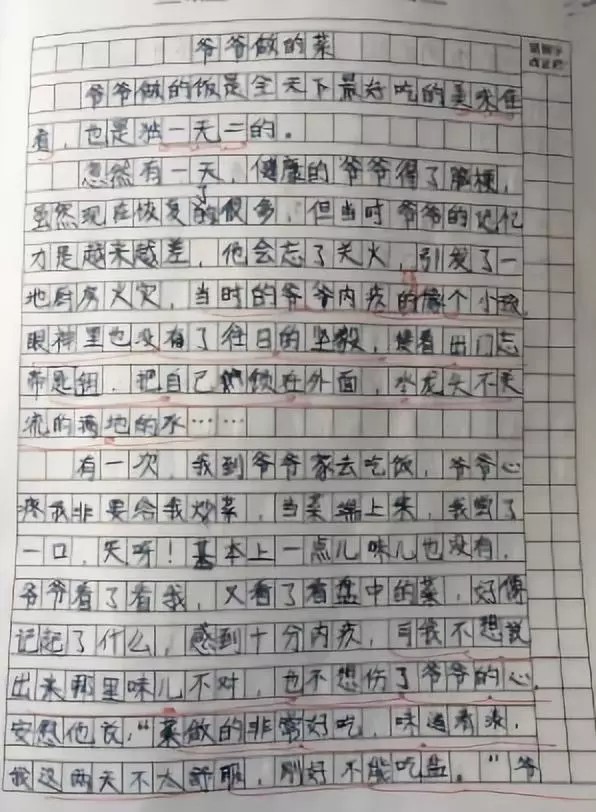 爷爷做的菜
爷爷做的饭是全天下最好吃的美味佳
肴，也是独一无二的。
忽然有一天，健康的爷爷得了脑梗，
虽然现在恢复了的很多，但当时爷爷的记忆
力是越来越差，他会忘了关火，引发了一
地厨房火灾，当时的爷爷内疚的像个小孩，
眼神里也没有了往日的坚毅，接着出门忘
带匙钥，把自己锁在外面，水龙头不关
流的满地的水……
有一次，我到爷爷家去吃饭，爷爷心
疼我非要给我炒菜，当菜端上来，我尝了
一口，天呀！基本上一点儿味儿也没有，
爷爷看了看我，又看了看盘中的菜，好像
记起了什么，感到十分内疚，可我不想说
出来那里味儿不对，也不想伤了爷爷的心，
安慰他说：“菜做的非常好吃，味道清淡，
我这两天不太舒服，刚好不能吃盐。”爷